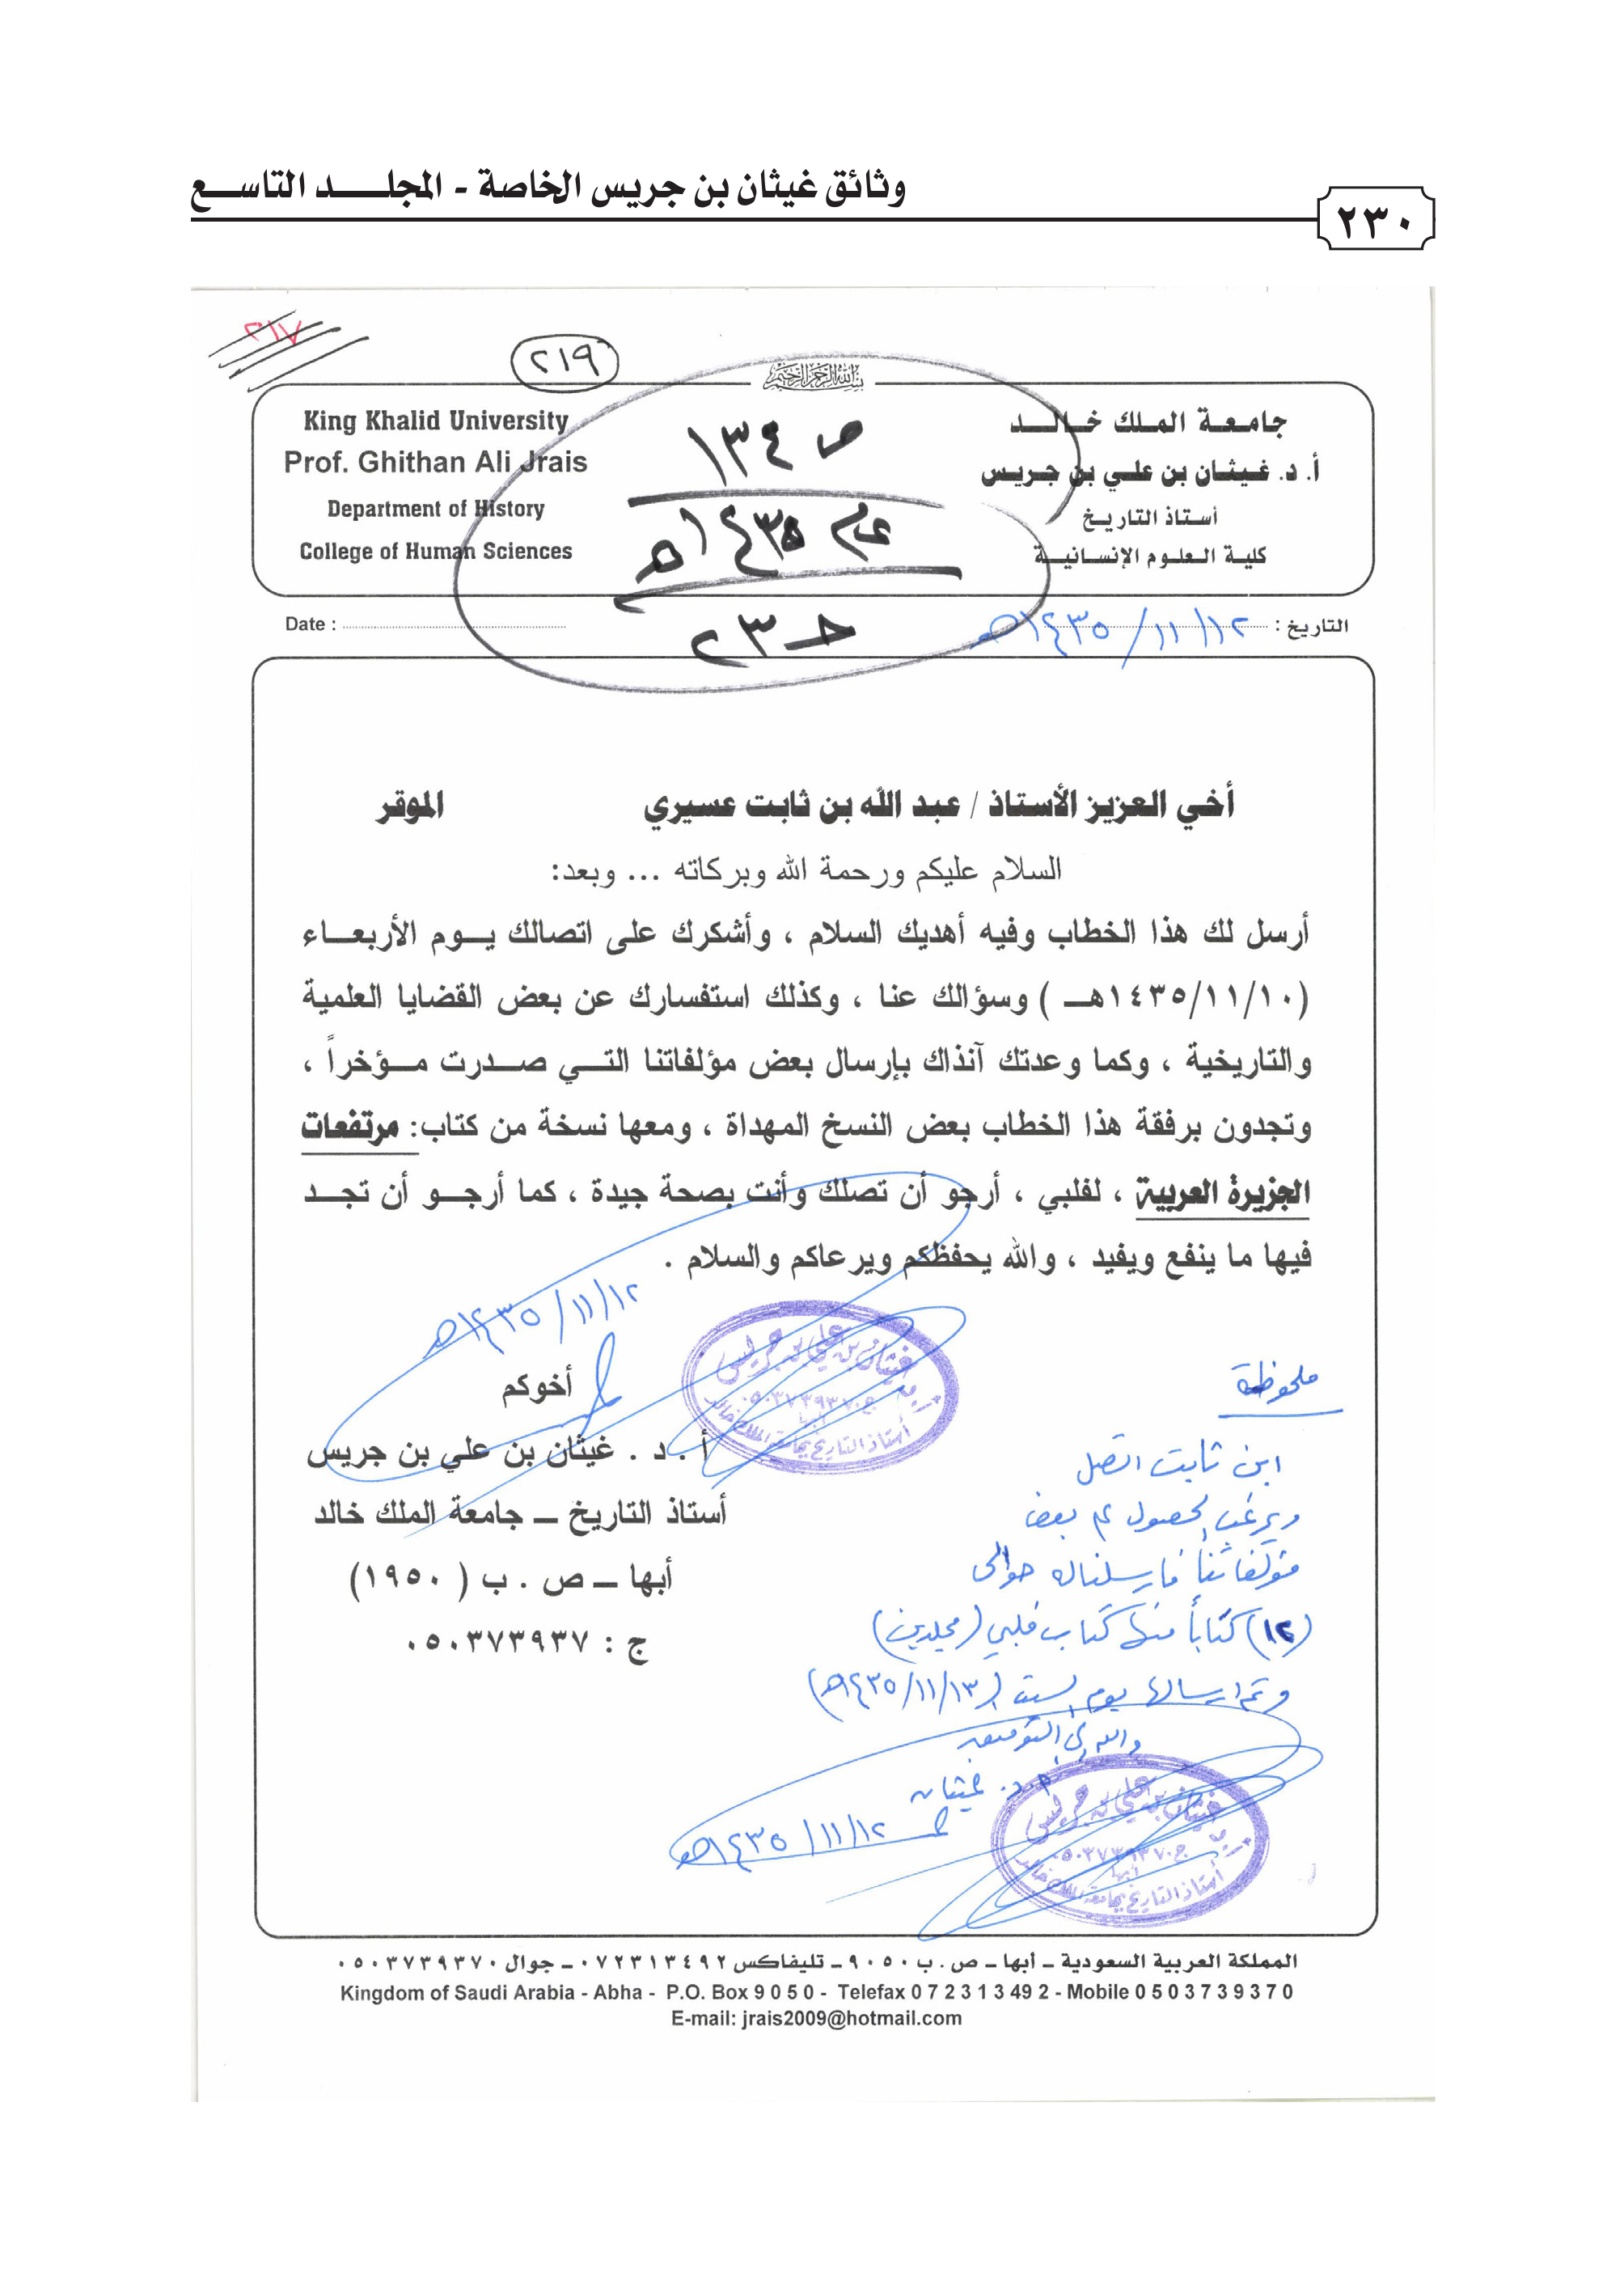 وثائق غيثان بن جريس الخاصة - المجلد التاسع
٢٣٠
٢١٧
٢١٩
بسم الله الرحمن الرحيم
جامعة الملك خالد
أ. د. غيثان بن علي بن جريس
أستاذ التاريخ
كلية العلوم الإنسانية
King Khalid University
Prof. Ghithan Ali Jrais
Department of History
College of Human Sciences
ص ١٣٤
عام ١٤٣٥هـ
حـ ٢٣
التاريخ : ١٤٣٥/١١/١٢هـ
Date :
أخي العزيز الأستاذ / عبد الله بن ثابت عسيري الموقر
السلام عليكم ورحمة الله وبركاته ... وبعد:
أرسل لك هذا الخطاب وفيه أهديك السلام ، وأشكرك على اتصالك يوم الأربعاء
(١٤٣٥/١١/١٠هـ ) وسؤالك عنا ، وكذلك استفسارك عن بعض القضايا العلمية
والتاريخية ، وكما وعدتك آنذاك بإرسال بعض مؤلفاتنا التي صدرت مؤخراً ،
وتجدون برفقة هذا الخطاب بعض النسخ المهداة ، ومعها نسخة من كتاب: مرتفعات
الجزيرة العربية ، لفلبي ، أرجو أن تصلك وأنت بصحة جيدة ، كما أرجو أن تجد
فيها ما ينفع ويفيد ، والله يحفظكم ويرعاكم والسلام .
١٤٣٥/١١/١٢هـ
أخوكم
أ . د . غيثان بن علي بن جريس
أستاذ التاريخ – جامعة الملك خالد
أبها – ص . ب ( ١٩٥٠)
ج : ٠٥٠٣٧٣٩٣٧
غيثان بن علي بن جريس
ج.٠٥٠٣٧٣٩٣٧٠
أبها
أستاذ التاريخ بجامعة الملك خالد
ملحوظة
ابن ثابت اتصل
ويرغب الحصول على بعض
مؤلفاتنا فأرسلنا له حوالى
(١٢) كتاباً منها كتاب فلبي (مجلدين)
وتم إرسالها يوم السبت (١٤٣٥/١١/١٣هـ)
والله ولي التوفيق
أ.د. غيثان
١٤٣٥/١١/١٢هـ
غيثان بن علي بن جريس
ج.٠٥٠٣٧٣٩٣٧٠
أبها
أستاذ التاريخ بجامعة الملك خالد
المملكة العربية السعودية – أبها – ص . ب ٩٠٥٠ – تليفاكس ٠٧٢٣١٣٤٩٢ – جوال ٠٥٠٣٧٣٩٣٧٠
Kingdom of Saudi Arabia - Abha - P.O. Box 9 0 5 0 - Telefax 0 7 2 3 1 3 49 2 - Mobile 0 5 0 3 7 3 9 3 7 0
E-mail: jrais2009@hotmail.com